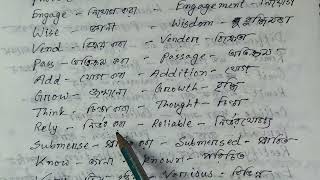 Engage - নিয়োগ করা - Engagement - নিয়োগ
Wise - জ্ঞানী - Wisdom -
Vend - বিক্রয় করা - Vendor - বিক্রেতা
Pass - অতিক্রম করা - Passage - অতিক্রম
Add - যোগ করা - Addition - যোগ
Grow - জন্মানো - Growth - বৃদ্ধি
Think - চিন্তা করা - Thought - চিন্তা
Rely - নির্ভর করা - Reliable - নির্ভরযোগ্য
Submerse - করা - Submersed -
Know - জানা - Known - পরিচিত
Various - বিভিন্ন